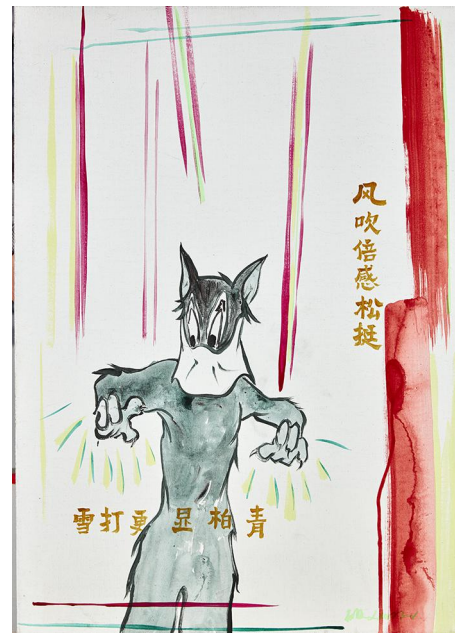 风吹倍感松挺
雪打更显柏青